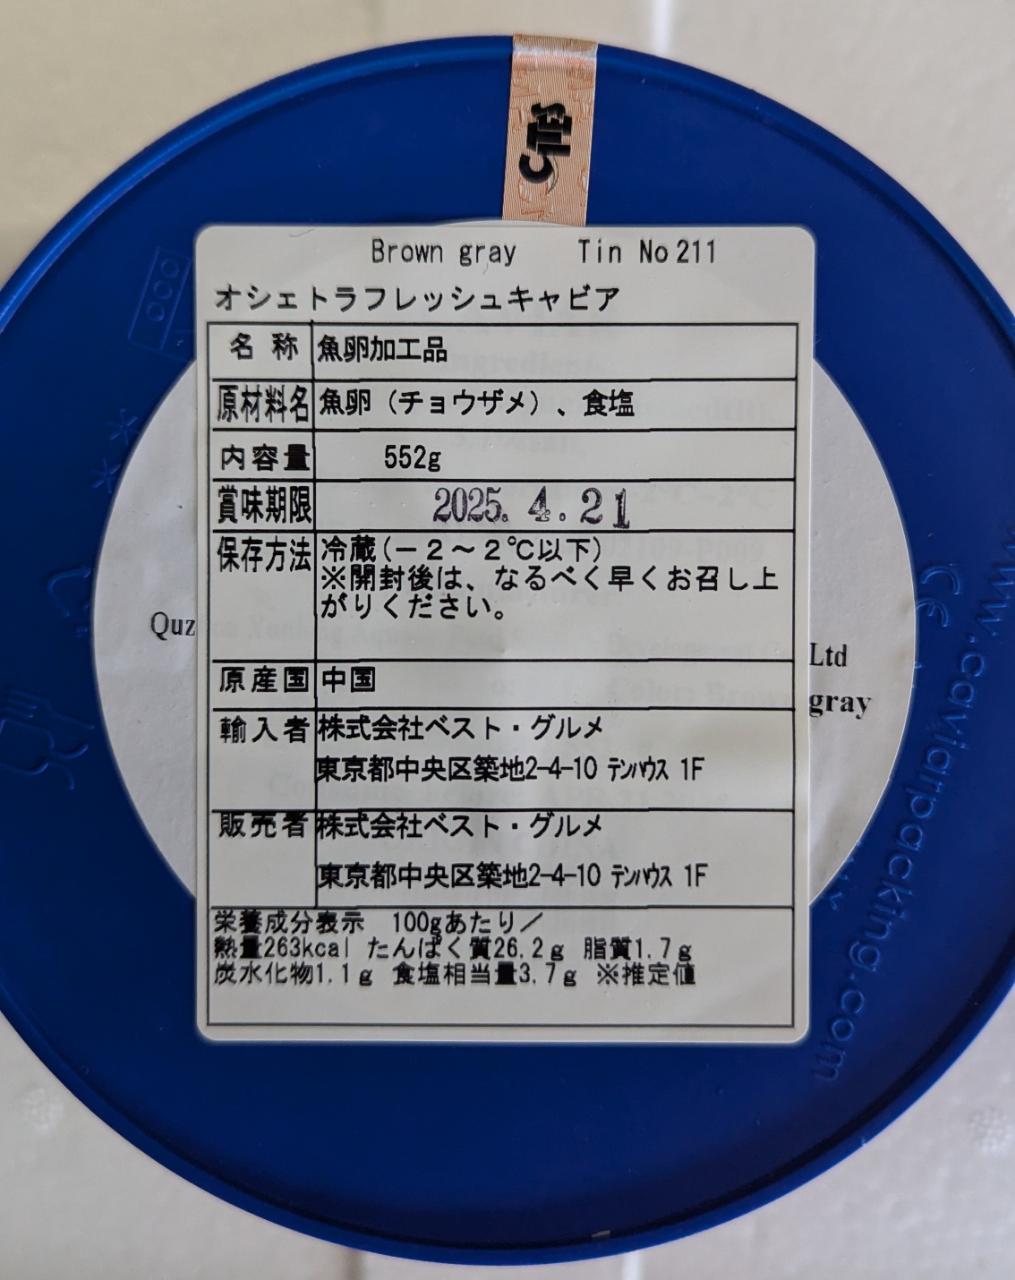 CITES
Brown gray Tin No 211
オシェトラフレッシュキャビア
名 称 魚卵加工品
原材料名 魚卵（チョウザメ）、食塩
内容量 552g
賞味期限 2025. 4. 21
保存方法 冷蔵(－２～２℃以下)
※開封後は、なるべく早くお召し上
がりください。
原産国 中国
輸入者 株式会社ベスト・グルメ
東京都中央区築地2-4-10 ﾃﾝﾊｳｽ 1F
販売者 株式会社ベスト・グルメ
東京都中央区築地2-4-10 ﾃﾝﾊｳｽ 1F
栄養成分表示 100gあたり／
熱量263kcal たんぱく質26.2g 脂質1.7g
炭水化物1.1g 食塩相当量3.7g ※推定値
Quz
Ltd
gray
www.caviarpacking.com